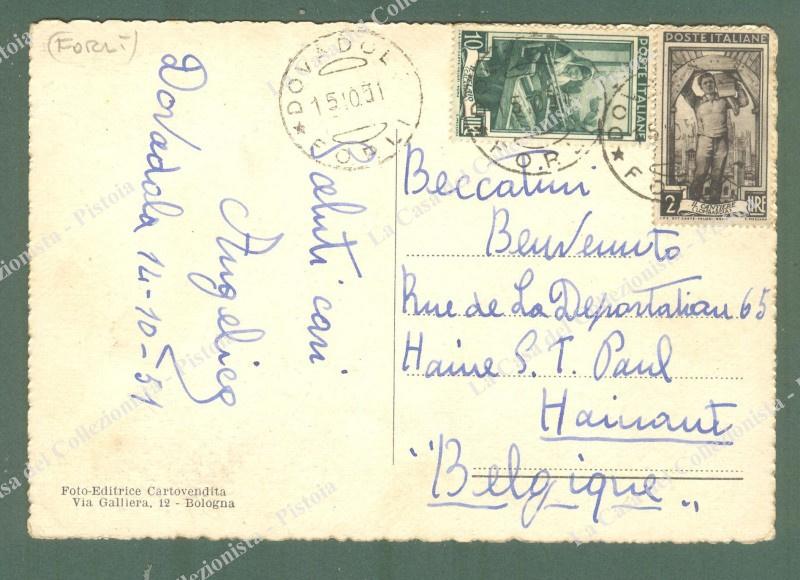 (FORLI)
Dovadola 14-10-51
Saluti cari
Angelica
DOVADOL
15.10.51
FORLI
10
LIRE
POSTE ITALIANE
POSTE ITALIANE
2
LIRE
IL CANTIERE
Beccatini
Benvenuto
Rue de La Deportation 65
Haine S. T. Paul
Hainaut
"Belgique"
Foto-Editrice Cartovendita
Via Galliera, 12 - Bologna
La Casa del Collezionista - Pistoia